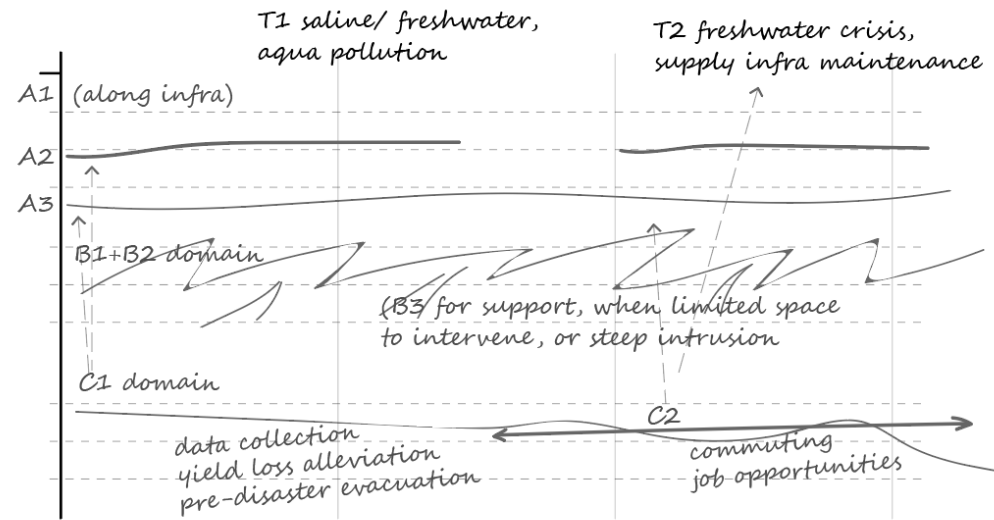 T1 saline/ freshwater,
aqua pollution
T2 freshwater crisis,
supply infra maintenance
A1 (along infra)
A2
A3
B1+B2 domain
(B3 for support, when limited space
to intervene, or steep intrusion
C1 domain
C2
data collection
yield loss alleviation
pre-disaster evacuation
commuting
job opportunities